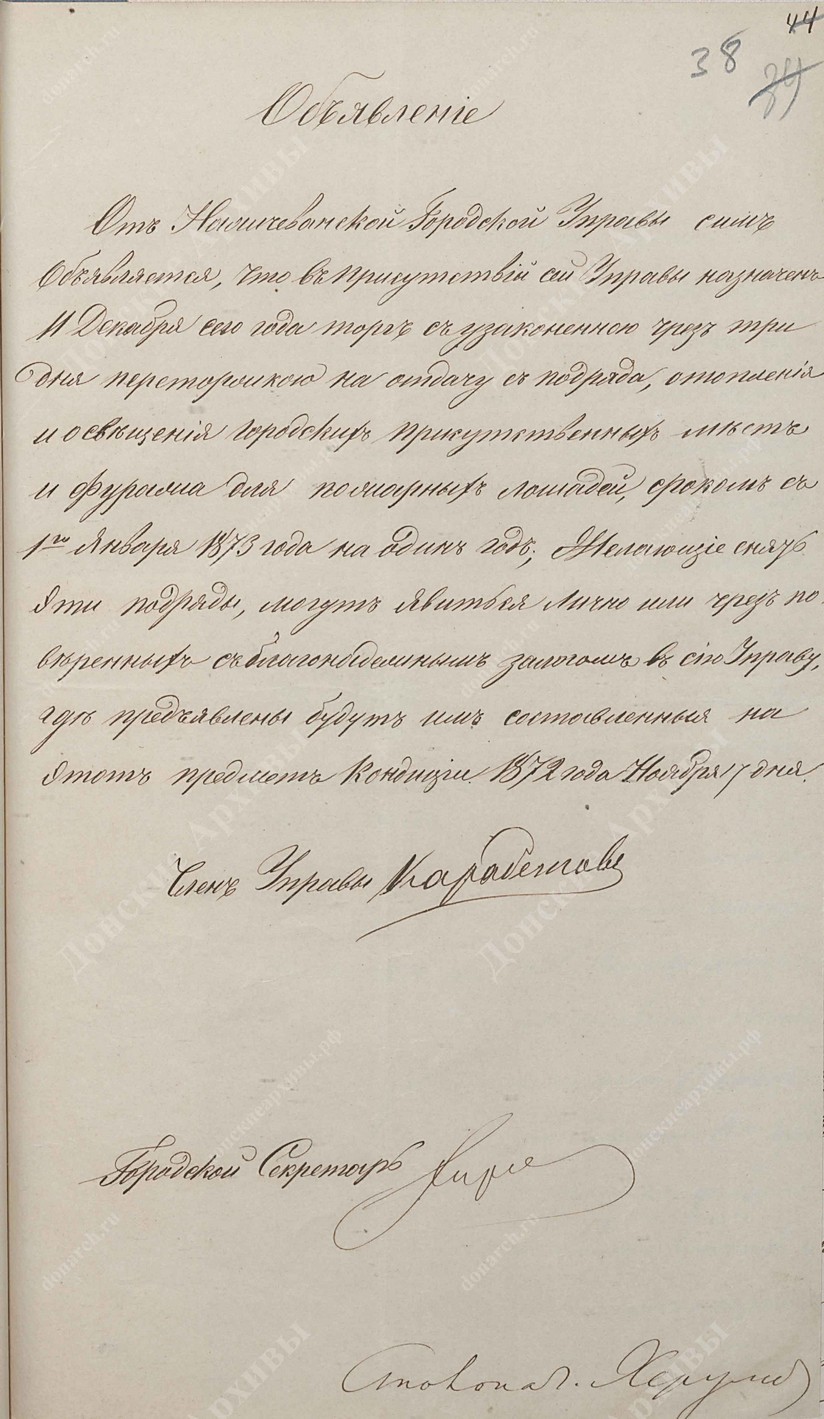 44
38
39
Объявленіе
Отъ Нахичеванской Городской Управы симъ
объявляется, что въ присутствіи сей Управы назначенъ
11 Декабря сего года торгъ съ узаконенною чрезъ три
дня переторжкою на отдачу съ подряда, отопленія
и освѣщенія городскихъ присутственныхъ мѣстъ
и фуража для пожарныхъ лошадей, срокомъ съ
1го Января 1873 года на одинъ годъ; Желающіе снять
эти подряды, могутъ явиться лично или чрезъ по-
вѣренныхъ съ благонадежнымъ залогомъ въ сію Управу,
гдѣ предъявлены будутъ имъ составленныя на
этотъ предметъ Кондиціи. 1872 года Ноября 17 дня.
Членъ Управы
Городской Секретарь